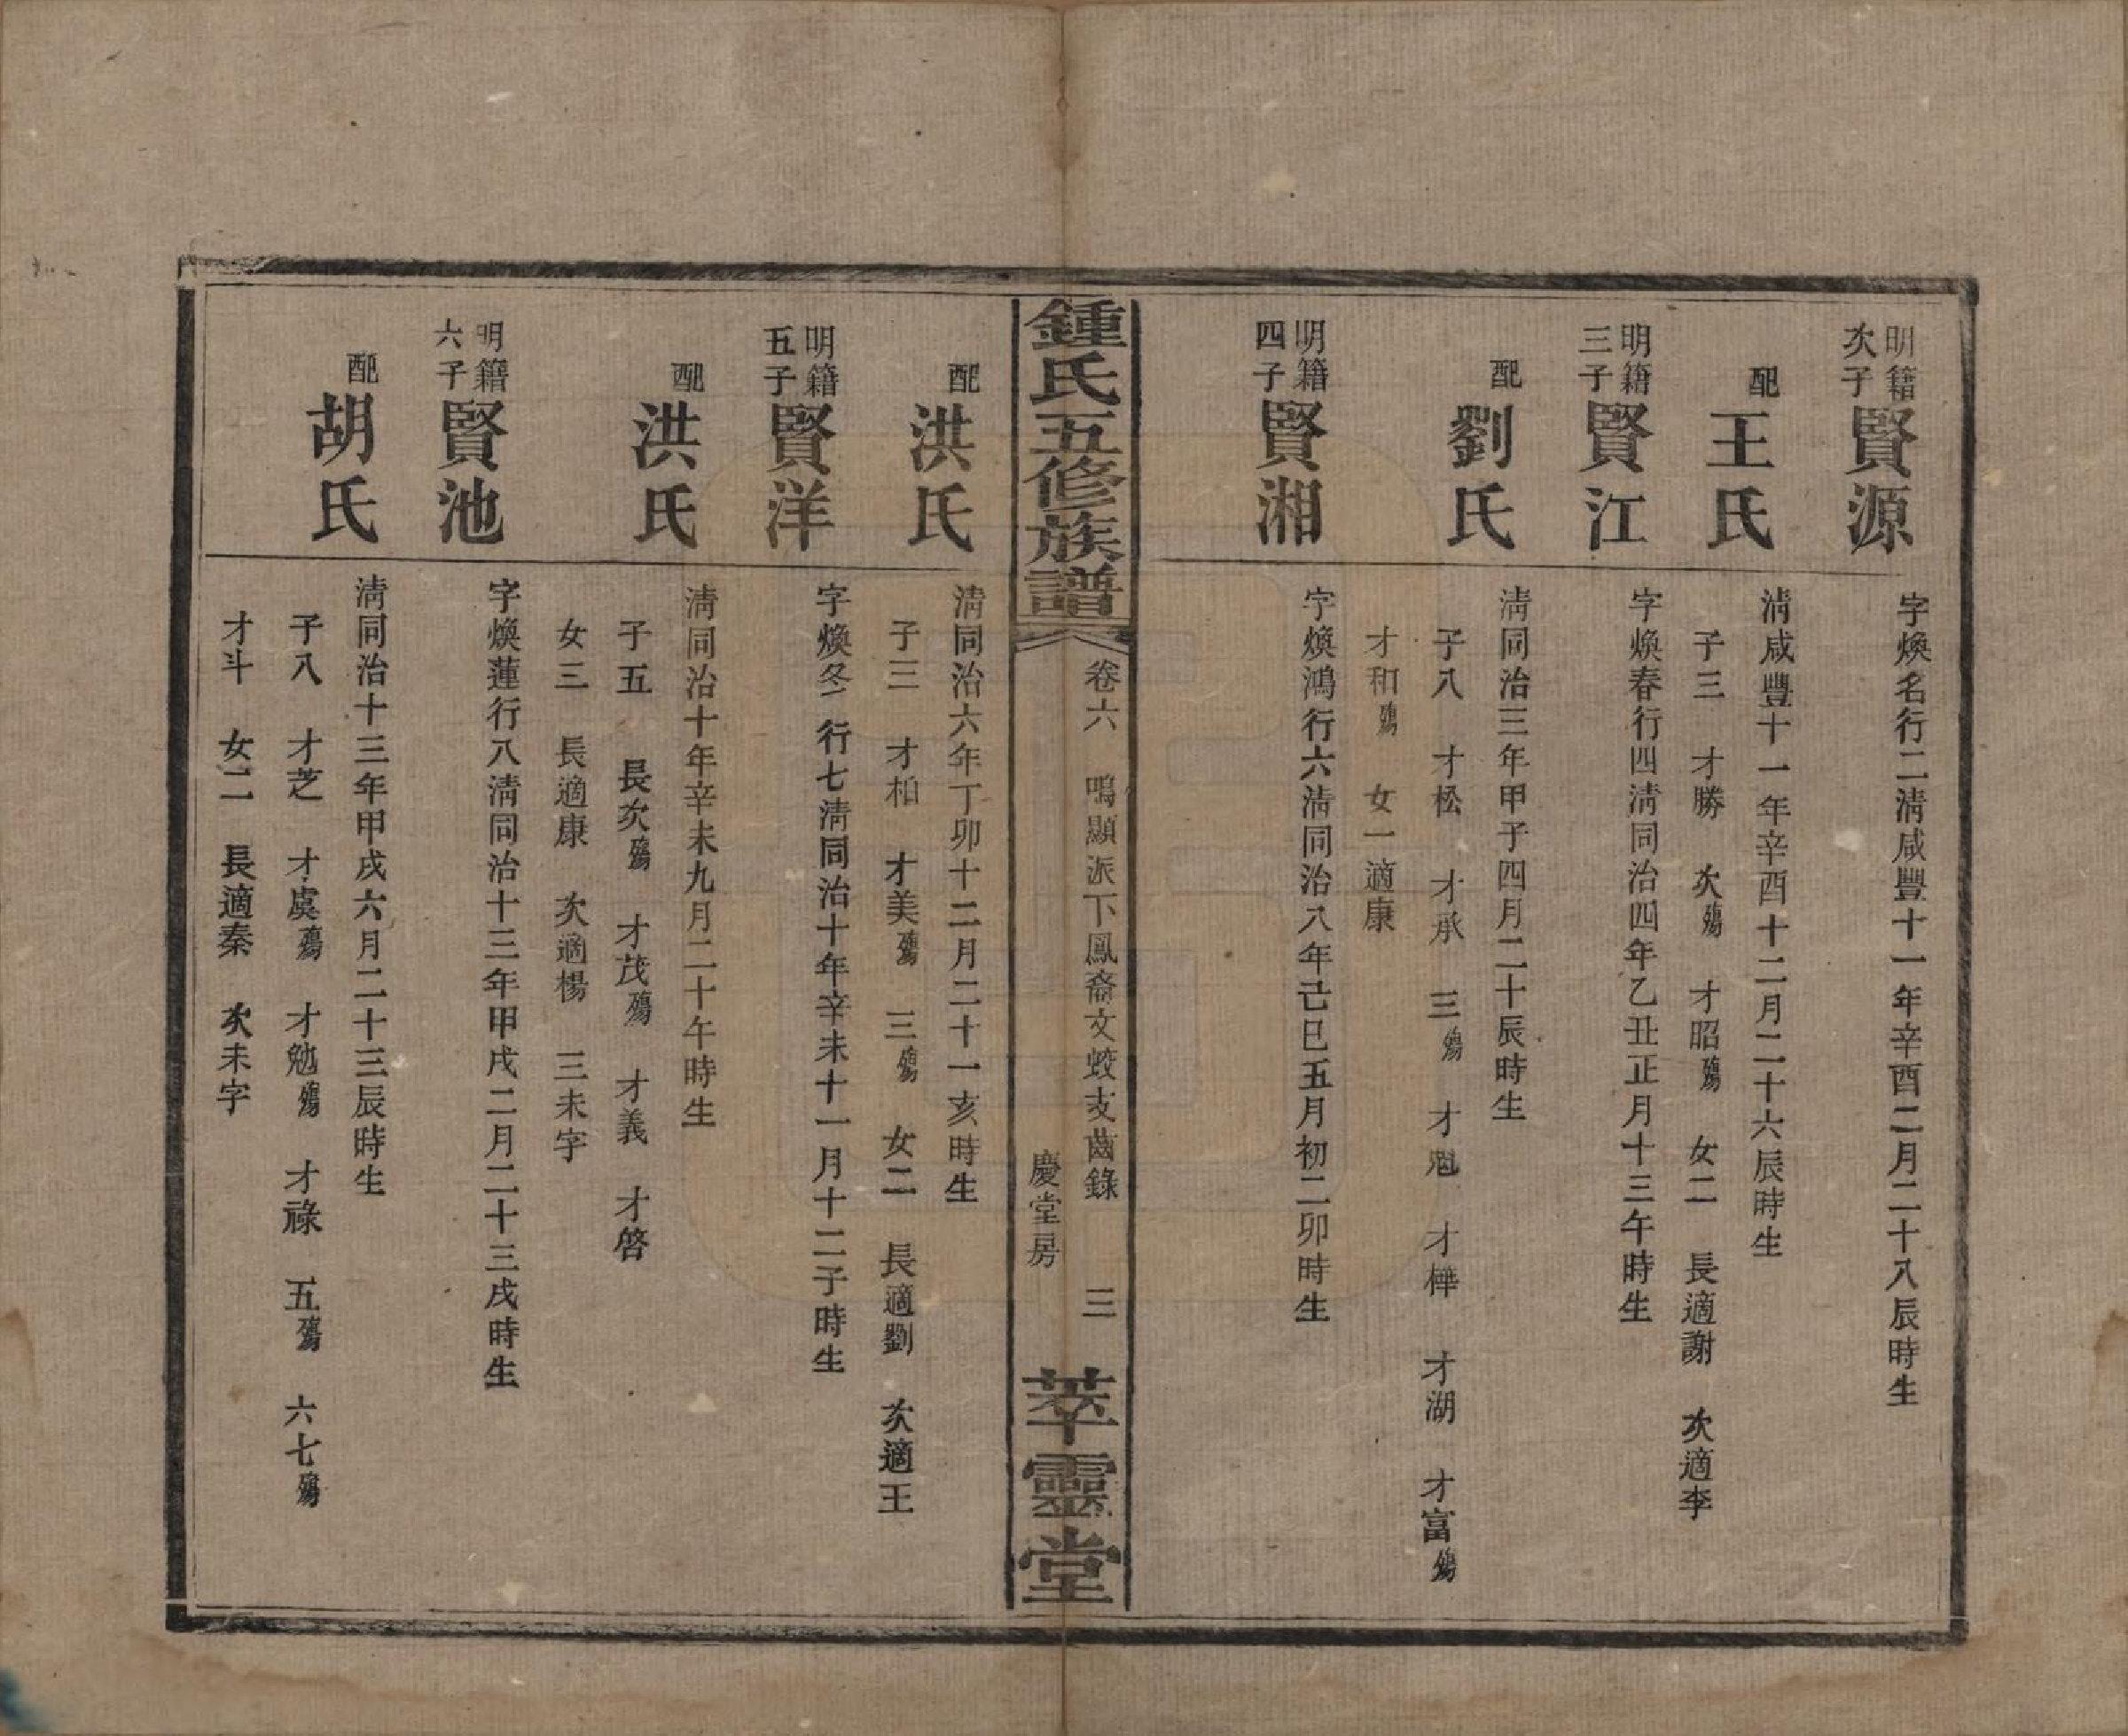 明籍次子 賢源
字煥名行二清咸豐十一年辛酉二月二十八辰時生
配 王氏
清咸豐十一年辛酉十二月二十六辰時生
子三 才勝 次殤 才昭殤 女二 長適謝 次適李
明籍三子 賢江
字煥春行四清同治四年乙丑正月十三午時生
配 劉氏
清同治三年甲子四月二十辰時生
子八 才松 才承 三殤 才魁 才樺 才湖 才富殤
才和殤 女一適康
明籍四子 賢湘
字煥鴻行六清同治八年己巳五月初二卯時生
鍾氏五修族譜 卷六 鳴顯派下鳳裔文蛟支齒錄 三 萃靈堂
慶堂房
配 洪氏
清同治六年丁卯十二月二十一亥時生
子三 才柏 才美殤 三殤 女二 長適劉 次適王
明籍五子 賢洋
字煥冬行七清同治十年辛未十一月十二子時生
配 洪氏
清同治十年辛未九月二十午時生
子五 長次殤 才茂殤 才義 才啓
女三 長適康 次適楊 三未字
明籍六子 賢池
字煥蓮行八清同治十三年甲戌二月二十三戌時生
配 胡氏
清同治十三年甲戌六月二十三辰時生
子八 才芝 才虞殤 才勉殤 才祿 五殤 六七殤
才斗 女二 長適秦 次未字